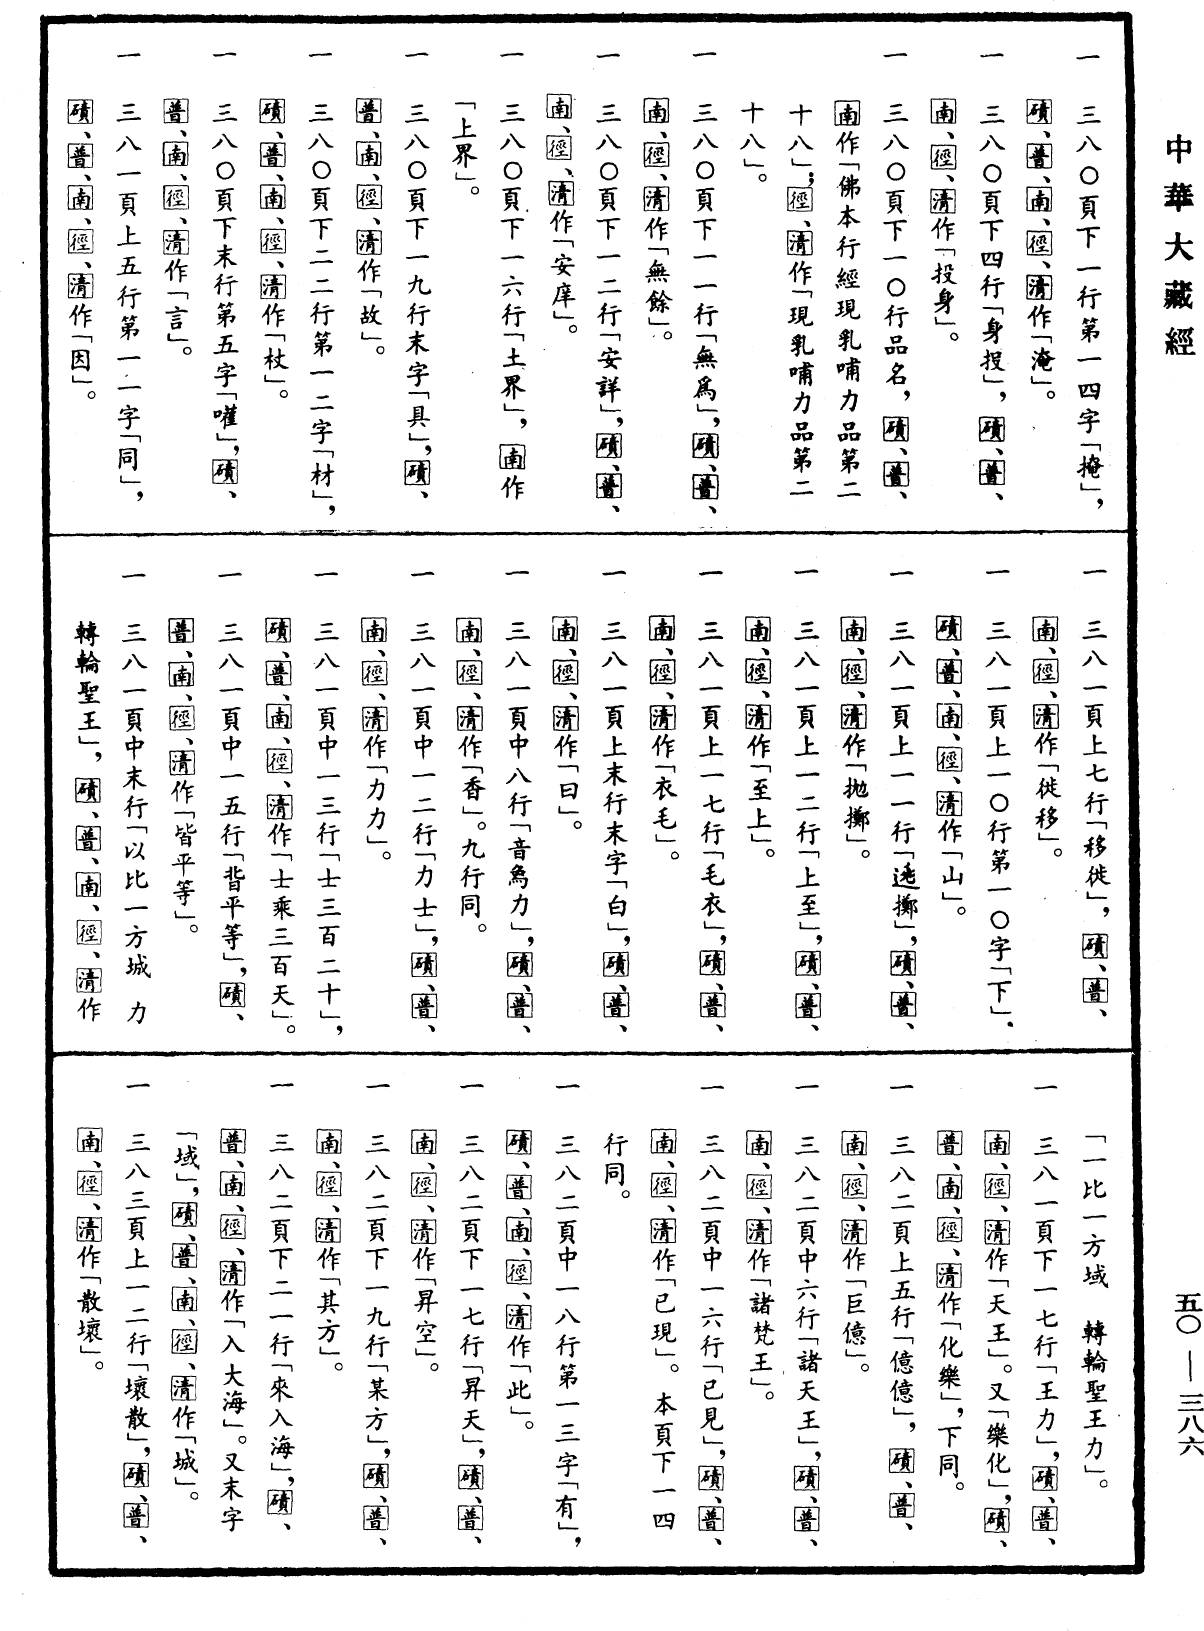 中華大藏經
一　三八〇頁下一行第一四字「掩」，
磧、普、南、徑、清作「淹」。
一　三八〇頁下四行「身投」，磧、普、
南、徑、清作「投身」。
一　三八〇頁下一〇行品名，磧、普、
南作「佛本行經現乳哺力品第二
十八」；徑、清作「現乳哺力品第二
十八」。
一　三八〇頁下一一行「無爲」，磧、普、
南、徑、清作「無餘」。
一　三八〇頁下一二行「安詳」，磧、普、
南、徑、清作「安庠」。
一　三八〇頁下一六行「土界」，南作
「上界」。
一　三八〇頁下一九行末字「具」，磧、
普、南、徑、清作「故」。
一　三八〇頁下二二行第一二字「材」，
磧、普、南、徑、清作「杖」。
一　三八〇頁下末行第五字「嚾」，磧、
普、南、徑、清作「言」。
一　三八一頁上五行第一一字「同」，
磧、普、南、徑、清作「因」。
一　三八一頁上七行「移徙」，磧、普、
南、徑、清作「徙移」。
一　三八一頁上一〇行第一〇字「下」．
磧、普、南、徑、清作「山」。
一　三八一頁上一一行「擲」，磧、普、
南、徑、清作「拋擲」。
一　三八一頁上一二行「上至」，磧、普、
南、徑、清作「至上」。
一　三八一頁上一七行「毛衣」，磧、普、
南、徑、清作「衣毛」。
一　三八一頁上末行末字「白」，磧、普、
南、徑、清作「曰」。
一　三八一頁中八行「音爲力」，磧、普、
南、徑、清作「香」。九行同。
一　三八一頁中一二行「力士」，磧、普、
南、徑、清作「力力」。
一　三八一頁中一三行「士三百二十」，
磧、普、南、徑、清作「士乘三百天」。
一　三八一頁中一五行「背平等」，磧、
普、南、徑、清作「皆平等」。
一　三八一頁中末行「以比一方城　力
轉輪聖王」，磧、普、南、徑、清作
「一比一方域　轉輪聖王力」。
一　三八一頁下一七行「王力」，磧、普、
南、徑、清作「天王」。又「樂化」，磧、
普、南、徑、清作「化樂」，下同。
一　三八二頁上五行「億億」，磧、普、
南、徑、清作「巨億」。
一　三八二頁中六行「諸天王」，磧、普、
南、徑、清作「諸梵王」。
一　三八二頁中一六行「已見」，磧、普、
南、徑、清作「已現」。本頁下一四
行同。
一　三八二頁中一八行第一三字「有」，
磧、普、南、徑、清作「此」。
一　三八二頁下一七行「昇天」，磧、普、
南、徑、清作「昇空」。
一　三八二頁下一九行「某方」，磧、普、
南、徑、清作「其方」。
一　三八二頁下二一行「來入海」，磧、
普、南、徑、清作「入大海」。又末字
「域」，磧、普、南、徑、清作「城」。
一　三八三頁上一二行「壞散」，磧、普、
南、徑、清作「散壞」。
五〇——三八六